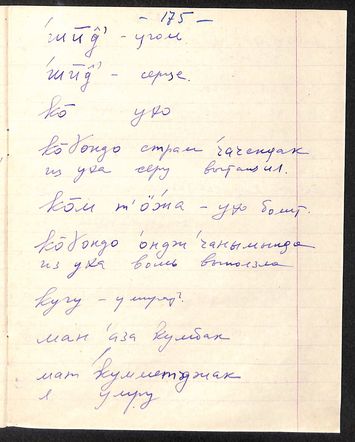 - 175 -
'шӣд̂' - угол
'шӣд̂' - серце.
кō ухо
кōɣондо страм 'чачендак
из уха серу вытащил.
кōм т'ӧжа - ухо болит.
кōɣондо 'ондж 'чанымында
из уха вошь выползла
кугу -
ман 'аза кумбак
мат кумметджак
я умру